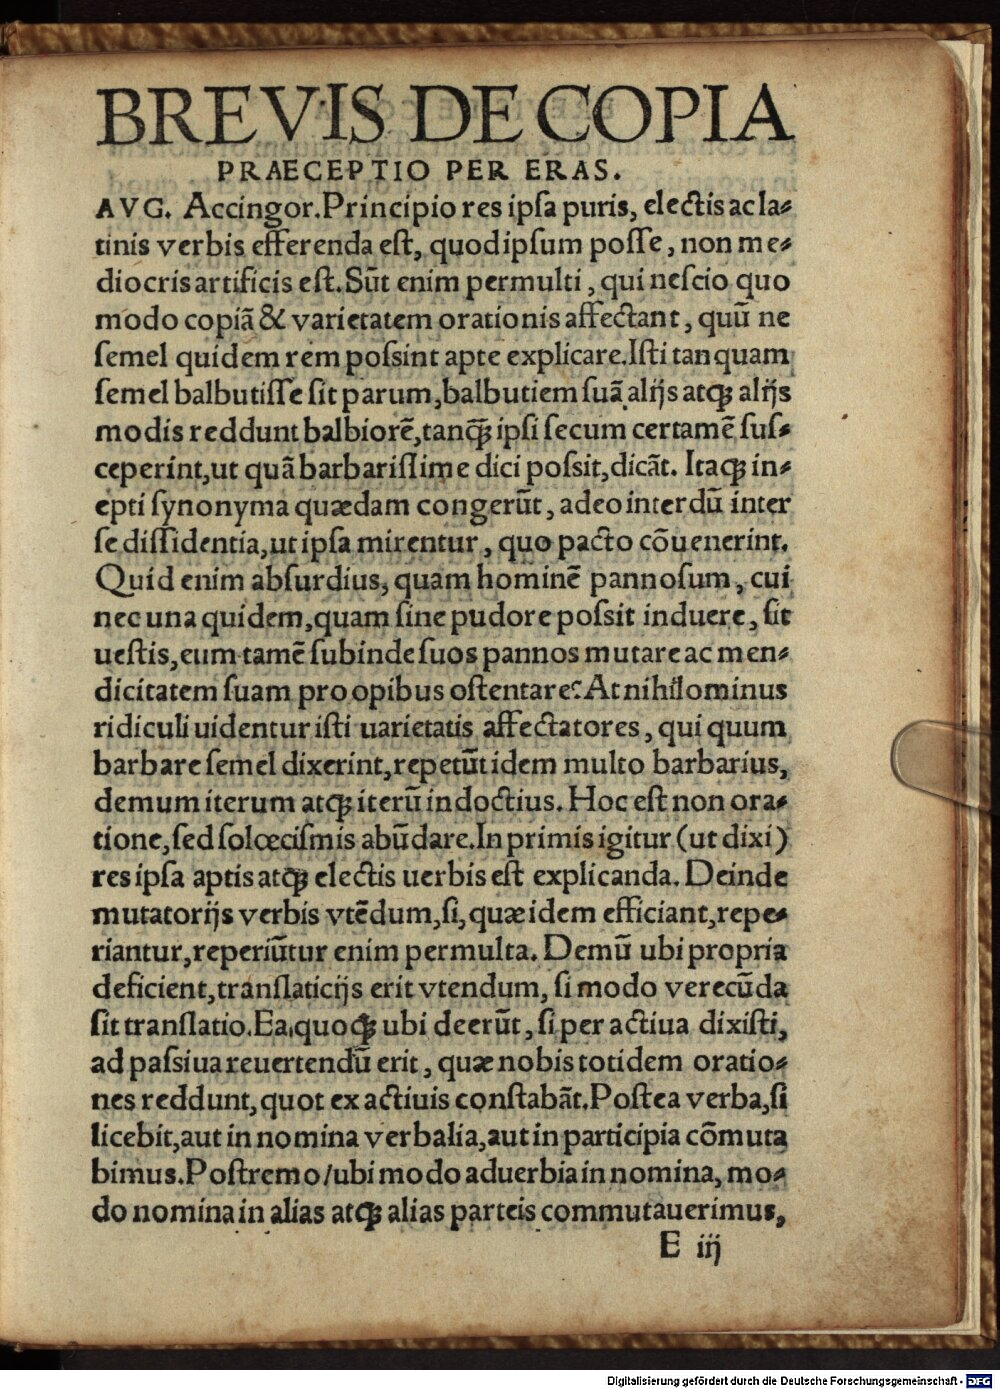 BREVIS DE COPIA
PRAECEPTIO PER ERAS.
AVG. Accingor. Principio res ipſa puris, electis ac la-
tinis verbis efferenda eſt, quod ipſum poſſe, non me-
diocris artificis eſt. Sũt enim permulti, qui neſcio quo
modo copiã & varietatem orationis affectant, quũ ne
ſemel quidem rem poſsint apte explicare. Iſti tanquam
ſemel balbutiſſe ſit parum, balbutiem ſuã alijs atqꝫ alijs
modis reddunt balbiorẽ, tanq̃ꝫ ipſi ſecum certamẽ ſuſ-
ceperint, ut quã barbariſſime dici poſsit, dicãt. Itaqꝫ in-
epti ſynonyma quædam congerũt, adeo interdũ inter
ſe diſſidentia, ut ipſa mirentur, quo pacto cõuenerint.
Quid enim abſurdius, quam hominẽ pannoſum, cui
nec una quidem, quam ſine pudore poſsit induere, ſit
ueſtis, eum tamẽ ſubinde ſuos pannos mutare ac men-
dicitatem ſuam pro opibus oſtentare? At nihilominus
ridiculi uidentur iſti uarietatis affectatores, qui quum
barbare ſemel dixerint, repetũt idem multo barbarius,
demum iterum atqꝫ iterũ indoctius. Hoc eſt non ora-
tione, ſed ſolœciſmis abũdare. In primis igitur (ut dixi)
res ipſa aptis atqꝫ electis uerbis eſt explicanda. Deinde
mutatorijs verbis vtẽdum, ſi, quæ idem efficiant, repe-
riantur, reperiũtur enim permulta. Demũ ubi propria
deficient, tranſlaticijs erit vtendum, ſi modo verecũda
ſit tranſlatio. Ea quoqꝫ ubi deerũt, ſi per actiua dixiſti,
ad paſsiua reuertendũ erit, quæ nobis totidem oratio-
nes reddunt, quot ex actiuis conſtabãt. Poſtea verba, ſi
licebit, aut in nomina verbalia, aut in participia cõmuta
bimus. Poſtremo/ubi modo aduerbia in nomina, mo-
do nomina in alias atqꝫ alias parteis commutauerimus,
E iij
Digitalisierung gefördert durch die Deutsche Forschungsgemeinschaft - DFG